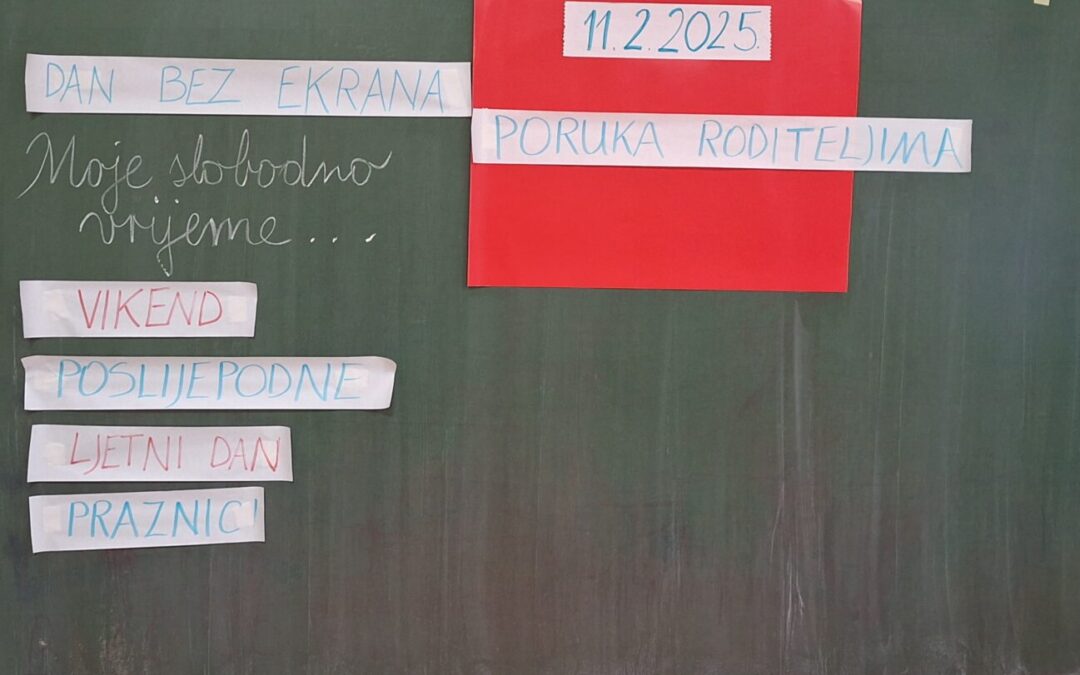 DAN BEZ EKRANA
Moje slobodno
vrijeme...
VIKEND
POSLIJEPODNE
LJETNI DAN
PRAZNICI
11.2.2025.
PORUKA RODITELJIMA